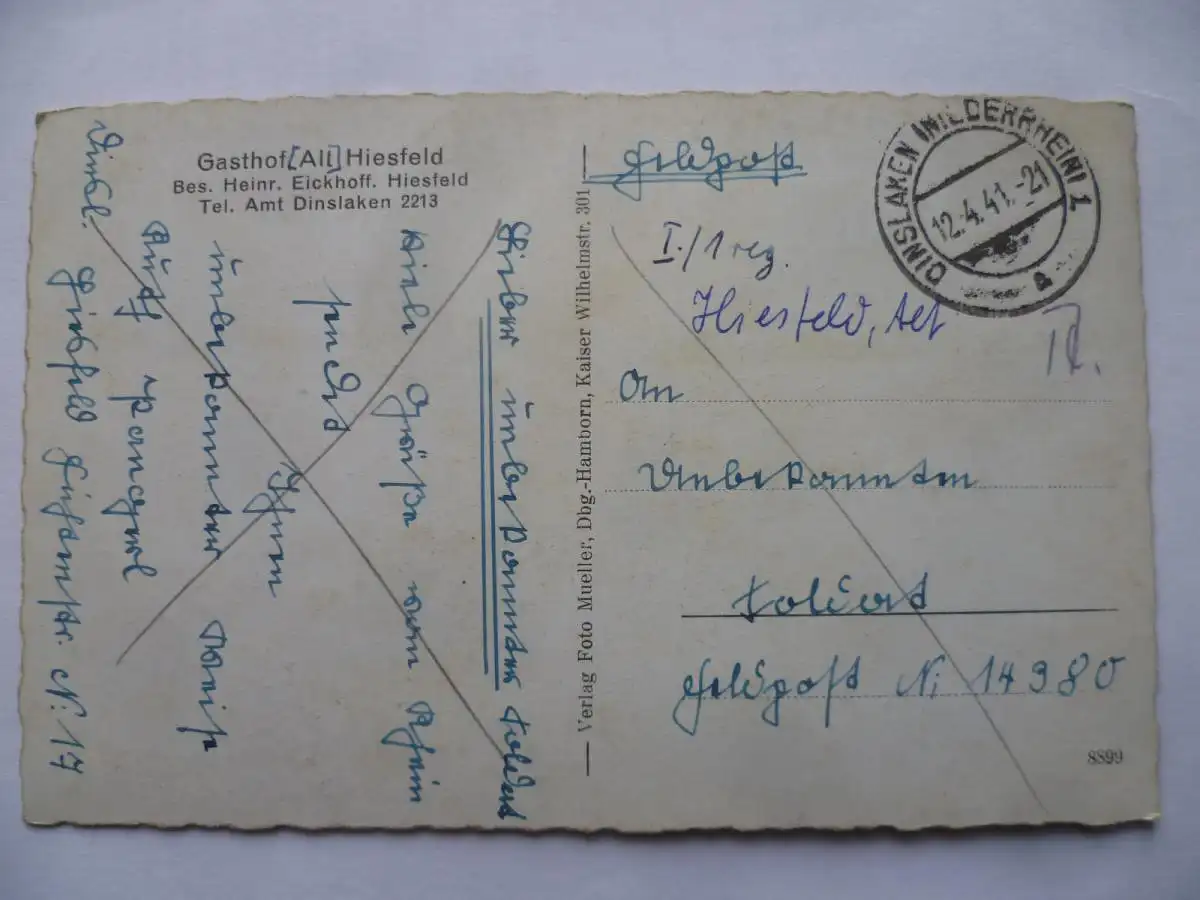 Gasthof [Alt] Hiesfeld
Bes. Heinr. Eickhoff. Hiesfeld
Tel. Amt Dinslaken 2213
Lieber unbekannter Soldat
Viele Grüße vom Rhein
sendet
Ihnen
unbekannter Weise
Dinsl. Hiesfeld N: 17
— Verlag Foto Mueller, Dbg.-Hamborn, Kaiser Wilhelmstr. 301 —
Feldpost
DINSLAKEN (NIEDERRHEIN) 1
12.4.41.-21
a
I./1 reg.
Hiesfeld, Alt
An
Unbekannten
Soldat
Feldpost N: 14980
8899